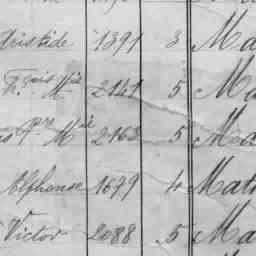 Aristide 1391 3 Ma
Fçois Mie 2141 5 Ma
Pre Mie 2163 5 Ma
Alphonse 1679 4 Mat
Victor 2088 5 Ma